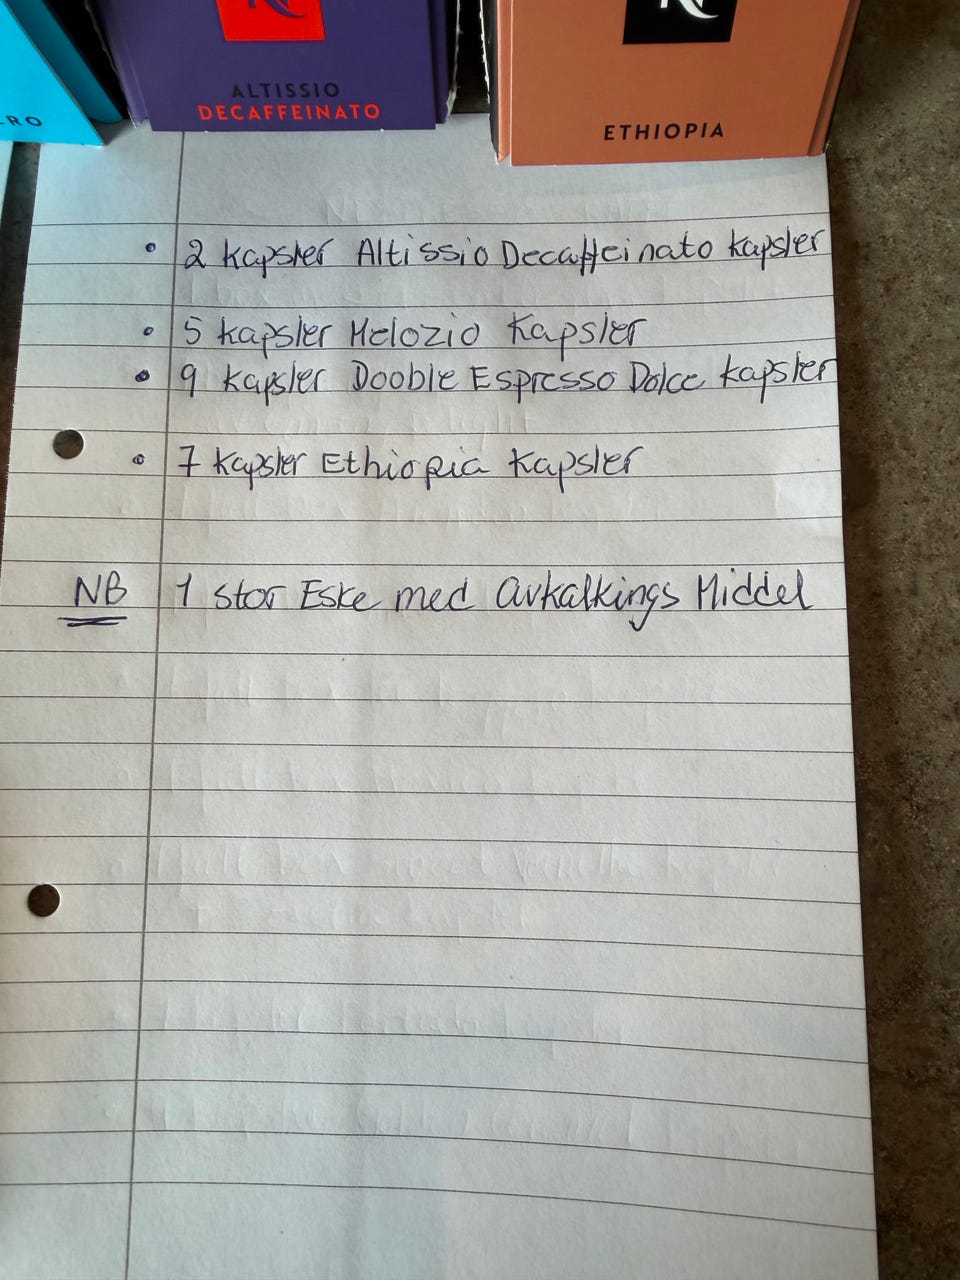 ALTISSIO
DECAFFEINATO
ETHIOPIA
• 2 kapsler Altissio Decaffeinato kapsler
• 5 kapsler Melozio Kapsler
• 9 kapsler Dooble Espresso Dolce kapsler
• 7 kapsler Ethiopia Kapsler
NB 1 stor Eske med Avkalkings Middel